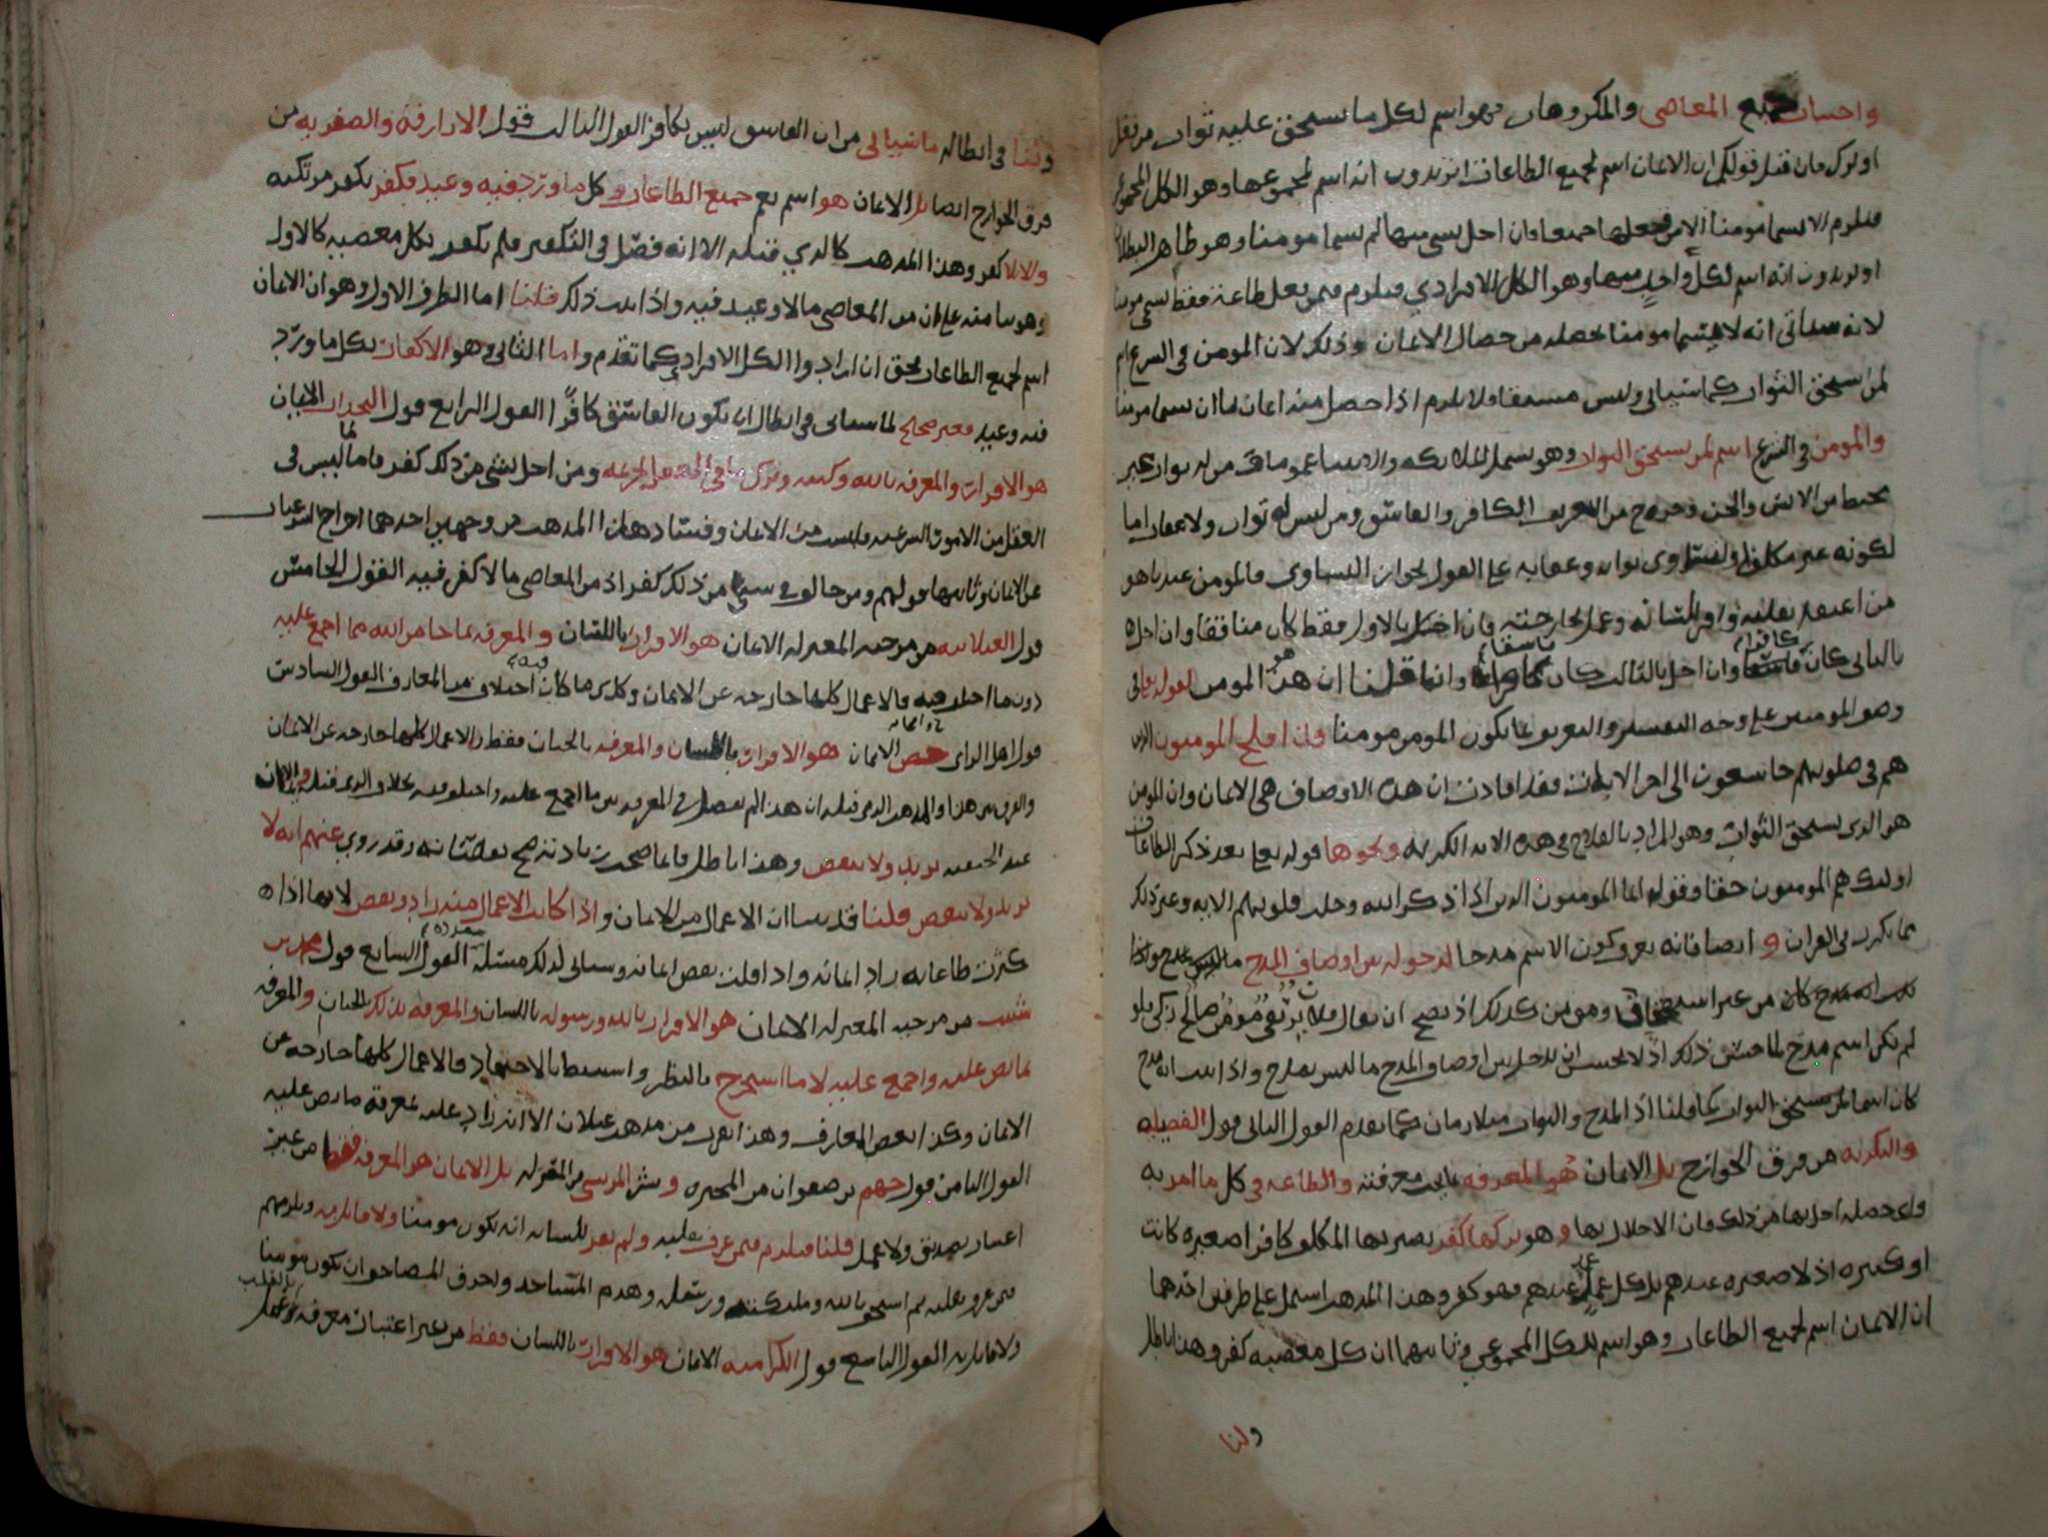 واجتناب جميع المعاصي والمكروهات فهو اسم لكل ما يستحق عليه ثواب من فعل
او ترك فان قيل قولكم ان الايمان اسم لجميع الطاعات اتريدون انه اسم لمجموعها وهو الكل المجموعي
فيلزم الا يسما مومنا الا من فعلها جميعا وان اخل بشي منها لم يسما مومنا وهو ظاهر البطلان
او تريدون انه اسم لكل واحد منها وهو الكل الافرادي فيلزم فيمن فعل طاعة فقط يسمى مومنا
لانه سياتي انه لا يسما مومنا بخصله من خصال الايمان وذلك لان المومن في الشرع اسم
لمن استحق الثواب كما سياتي وليس مشتقا فلا يلزم اذا حصل منه ايمان ما ان يسما مومنا
والمومن في الشرع اسم لمن يستحق الثواب وهو يشمل الملائكه والانبيا عموما في من له ثواب غير
محبط من الانس والجن وخرج من التعريف الكافر والفاسق ومن ليس له ثواب ولا عقاب اما
لكونه غير مكلف او لتساوي ثوابه وعقابه على القول بجواز التساوي فالمومن عندنا هو
من اعتقد بقلبه واقر بلسانه وعمل بجارحته فان اخل بالاول فقط كان منافقا وان اخل
بالثاني كان كافرا وان اخل بالثالث كان فاسقا وانما قلنا ان هذا هو المومن لقوله تعالى
وصف المومنين على وجه التفسير والتعريف بما يكون المومن مومنا قد افلح المومنون الذين
هم في صلوتهم خاشعون الى اخر الايات فقد افادت ان هذه الاوصاف هي الايمان وان المومن
هو الذي يستحق الثواب وهو المراد بالفلاح في هذه الايه الكريمه ونحوها قوله تعالى بعد ذكر الطاعات
اولئك هم المومنون حقا وقوله انما المومنون الذين اذا ذكر الله وجلت قلوبهم الايه وغير ذلك
مما يكرر في القران و ايضا فانه يعرف كون الاسم مدحا لدخوله بين اوصاف المدح ما ليس بمدح
كان من غير استحقاق ومومن كذلك اذ يصح ان يقال فلان بر تقي مومن صالح زكي فلو
لم يكن اسم مدح لما حسن ذلك اذ لا يحسن ان يدخل بين اوصاف المدح ما ليس بمدح واذا ثبت انه مدح
كان اسما لمن يستحق الثواب كما قلنا اذ المدح والثواب متلازمان كما تقدم القول الثاني قول الفضيليه
والبكريه من فرق الخوارج بل الايمان هو المعرفه بما يجب معرفته والطاعه في كل ما امر به
واي خصله اخل بها من ذلك فان الاخلال بها وهو تركها كفر يصير بها المكلف كافرا صغيره كانت
او كبيره اذ لا صغيره عندهم بل كل عمد عندهم فهو كفر وهذا المذهب اشتمل على طرفين احدهما
ان الايمان اسم لجميع الطاعات وهو اسم للكل المجموعي وثانيهما ان كل معصيه كفر وهذا باطل
ولنا
ولنا في ابطاله ما سياتي من ان الفاسق ليس بكافر القول الثالث قول الازارقه والصفريه من
فرق الخوارج ايضا بل الايمان هو اسم يعم جميع الطاعات وكل ما ورد فيه وعيد فكفر يكفر مرتكبه
والا فلا كفر وهذا المذهب كالذي قبله الا انه فصل في التكفير فلم يكفر بكل معصيه كالاول
وهو بنا منه على ان من المعاصي ما لا وعيد فيه واذا ثبت ذلك قلنا اما الطرف الاول وهو ان الايمان
اسم لجميع الطاعات فحق ان ارادوا الكل الافرادي كما تقدم واما الثاني وهو الاكفار بكل ما ورد
فيه وعيد فغير صحيح لما سياتي في ابطال ان يكون الفاسق كافرا القول الرابع قول النجدات الايمان
هو الاقرار والمعرفه بالله وكتبه وترك ما في العقل تحريمه ومن اخل بشي من ذلك كفر فاما ما ليس في
العقل من الامور الشرعيه فليست من الايمان وفساد هذا المذهب من وجهين احدهما اخراج الشرعيات
عن الايمان وثانيهما قولهم ومن خالف في شي من ذلك كفر اذ من المعاصي ما لا كفر فيه القول الخامس
قول الغيلانيه من مرجيه المعتزله الايمان هو الاقرار باللسان والمعرفه بما جا من الله مما اجمع عليه
دون ما اختلف فيه والاعمال كلها خارجه عن الايمان وكذلك ما كان فيه اختلاف من المعارف القول السادس
قول اهل الراي الايمان هو الاقرار باللسان والمعرفه بالجنان فقط والاعمال كلها خارجه عن الايمان
والفرق بين هذا والمذهب الذي قبله ان هذا لم يفصل في المعرفه بين ما اجمع عليه واختلف فيه بخلاف الذي قبله والايمان
عند الحنفيه يزيد ولا ينقص وهذا باطل فانما صحت زيادته صح نقصانه وقد روي عنهم انه لا
يزيد ولا ينقص قلنا قد بينا ان الاعمال من الايمان واذا كانت الاعمال منه زاد ونقص لانها اذا
كثرت طاعاته زاد ايمانه واذا قلت نقص ايمانه وسياتي لذلك مسئله مفرده القول السابع قول محمد بن
شبيب من مرجيه المعتزله الايمان هو الاقرار بالله ورسوله باللسان والمعرفه بذلك بالجنان والمعرفه
بما نص عليه واجمع عليه لا ما استخرج بالنظر واستنبط بالاجتهاد والاعمال كلها خارجه عن
الايمان وكذا بعض المعارف وهذا يقرب من مذهب غيلان الا انه زاد عليه بمعرفة ما نص عليه
القول الثامن قول جهم بن صفوان من المجبره وبشر المريسي من المعتزله بل الايمان هو المعرفه فقط من غير
اعتبار تصديق ولا عمل قلنا فيلزم فيمن عرف بقلبه ولم يقر بلسانه انه يكون مومنا ولا قائل به ويلزمهم
فيمن عرف بقلبه ثم استخف بالله وملئكته ورسله وهدم المساجد واحرق المصاحف ان يكون مومنا
ولا قائل به القول التاسع قول الكراميه الايمان هو الاقرار باللسان فقط من غير اعتبار معرفه بالقلب وعمل